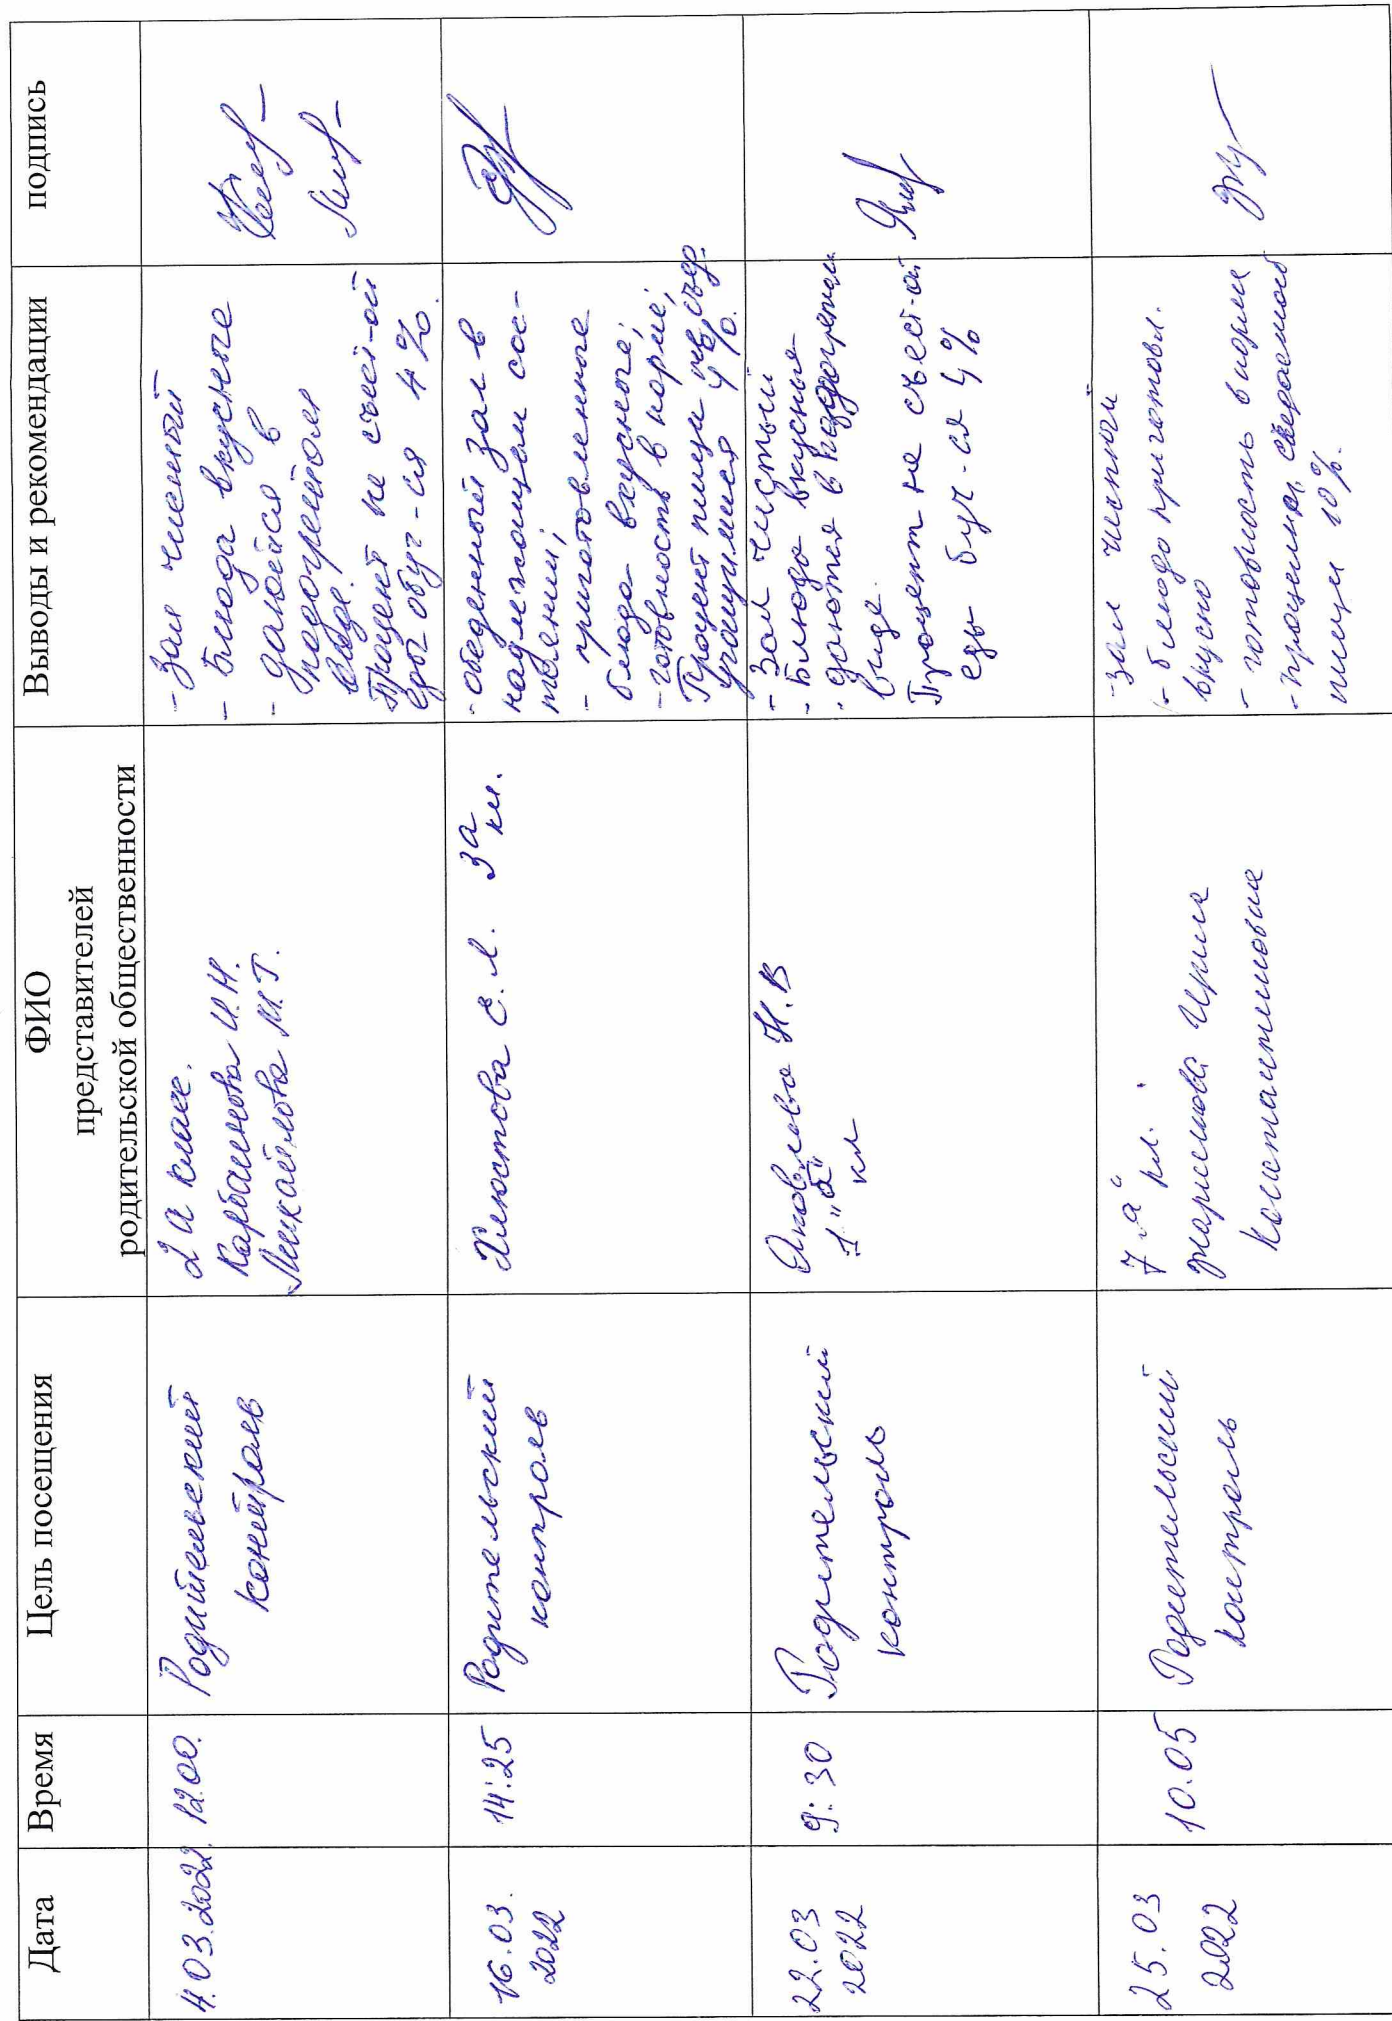 Дата
Время
Цель посещения
ФИО
представителей
родительской общественности
Выводы и рекомендации
подпись
4.03.2022.
12.00.
Родительский
контроль
2 А класс.
Карбаинова И.Н.
Михайлова М.Т.
- Зал чистый
- Блюда вкусные
- даются в
подогретом
виде.
Процент не съест-ой
еды обуч-ся 4%.
16.03.
2022
14:25
Родительский
контроль
Хлюстова Е.Л. 3а кл.
- обеденный зал в
надлежащем сос-
тоянии;
- приготовленные
блюда вкусные;
- готовность в норме;
Процент пищи не съед.
учащимися 4%.
22.03
2022
9:30
Родительский
контроль
Яковлева Н.В
1 "б"
кл
- Зал чистый
- Блюда вкусные
- даются в подогретом
виде
Процент не съест-ой
еды буч-ся 4%
25.03
2022
10.05
Родительский
контроль
7 "а" кл.
Жарникова Ирина
Константиновна
- зал чистый
- блюдо приготовл.
вкусно
- готовность в норме
- процент съеданой
пищи 10%.